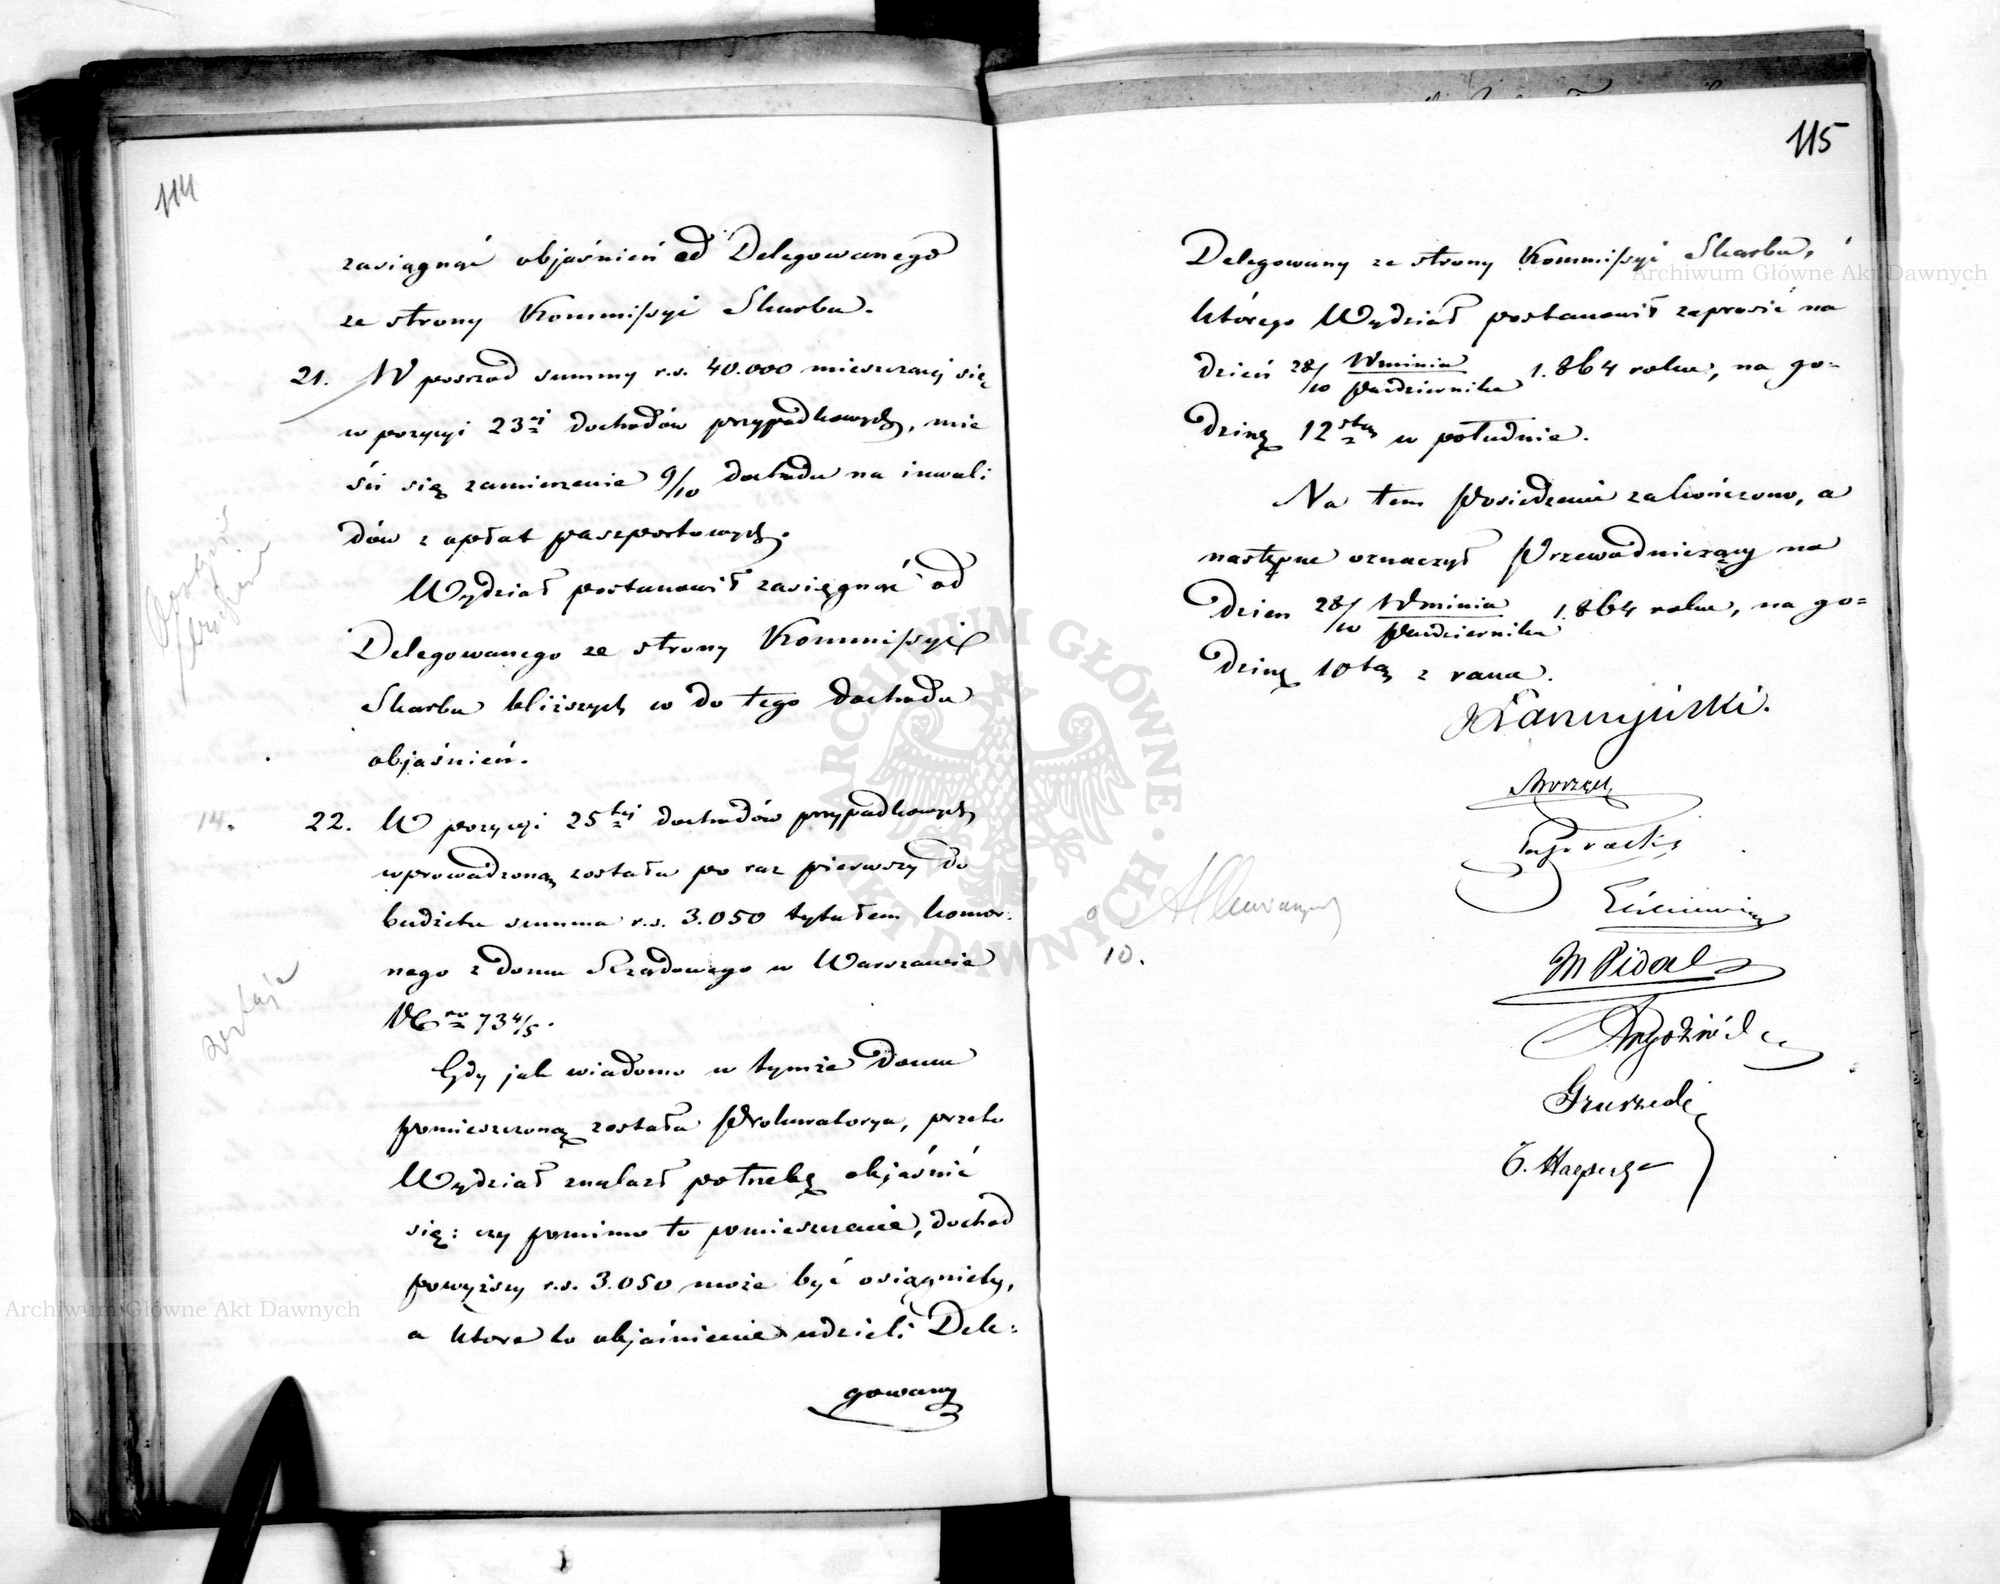 114
zasiągnąć objaśnień od Delegowanego
ze strony Kommissyi Skarbu.
21. W pośrzód summy r.s. 40.000 mieszczącej się
w pozycyi 23ej dochodów przypadkowych, mie
ści się zamierzenie 9/10 dochodu na inwali
dów z opłat paszportowych.
Wydział postanowił zasięgnąć od
Delegowanego ze strony Kommissyi
Skarbu bliższych co do tego dochodu
objaśnień.
14. 22. W pozycyi 25tej dochodów przypadkowych
wprowadzoną została po raz pierwszy do
budżetu summa r.s. 3.050 tytułem komor-
nego z domu Rządowego w Warszawie
Nro 734/5.
Gdy jak wiadomo w tymże Domu
pomieszczoną została Prokuratorya, przeto
Wydział znalazł potrzebę objaśnić
się: czy pomimo to pomieszczenie, dochód
powyższy r.s. 3.050 może być osiągnięty,
a które to objaśnienie udzieli Dele-
gowany
115
Delegowany ze strony Kommissyi Skarbu,
którego Wydział postanowił zaprosić na
dzień 28/10 Wrnia/Października 1.864 roku, na go-
dzinę 12stą w południe.
Na tem Posiedzenie zakończono, a
następne oznaczył Przewodniczący na
Dzień 28/10 Wrnia/Października 1.864 roku, na go-
dzinę 10tą z rana.
Łaszczyński.
10.